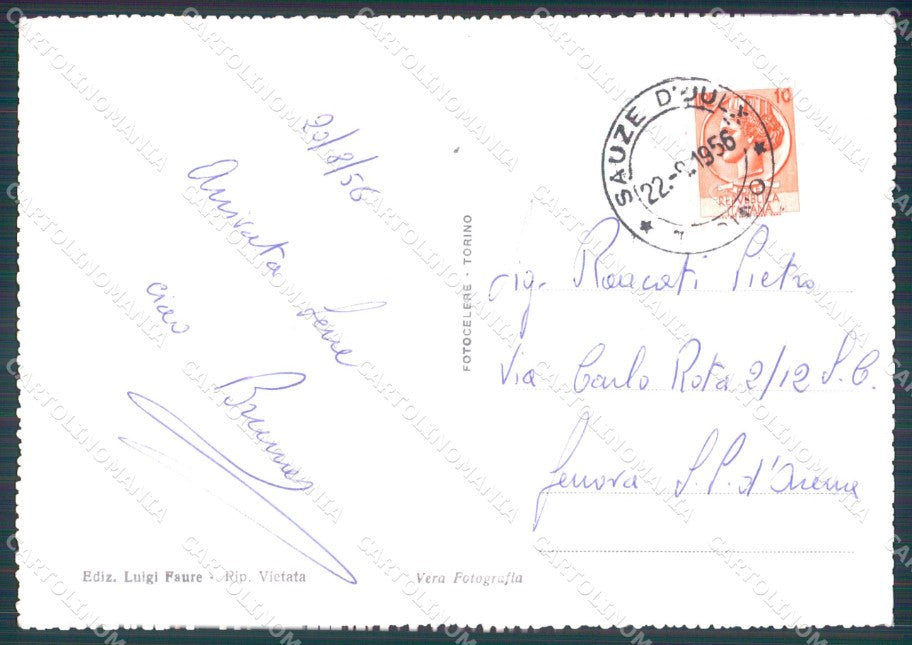 20/8/56
Arrivata bene
ciao
Bruna
Ediz. Luigi Faure - Rip. Vietata
Vera Fotografia
FOTOCELERE - TORINO
SAUZE D'OULX
22.-8.1956
10
REPVBBLICA
ITALIANA
Sig. Roncati Pietro
Via Carlo Rota 2/12 S.C.
Genova S.P. d'Arena
CARTOLINOMANIA